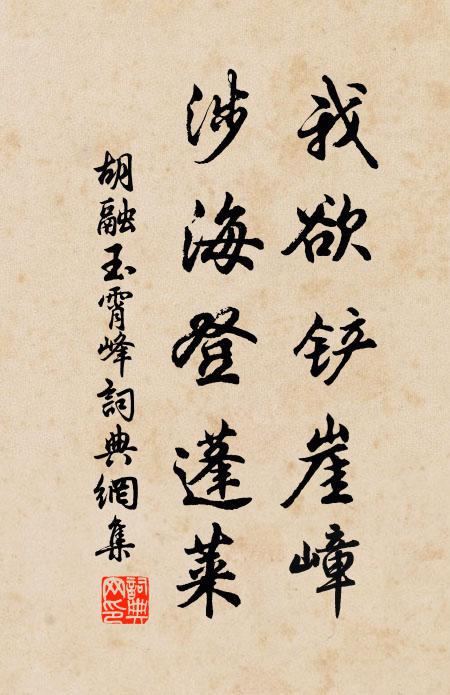 我欲铲崖嶂
涉海登蓬莱
胡融玉霄峰詞典網集
詞典網印